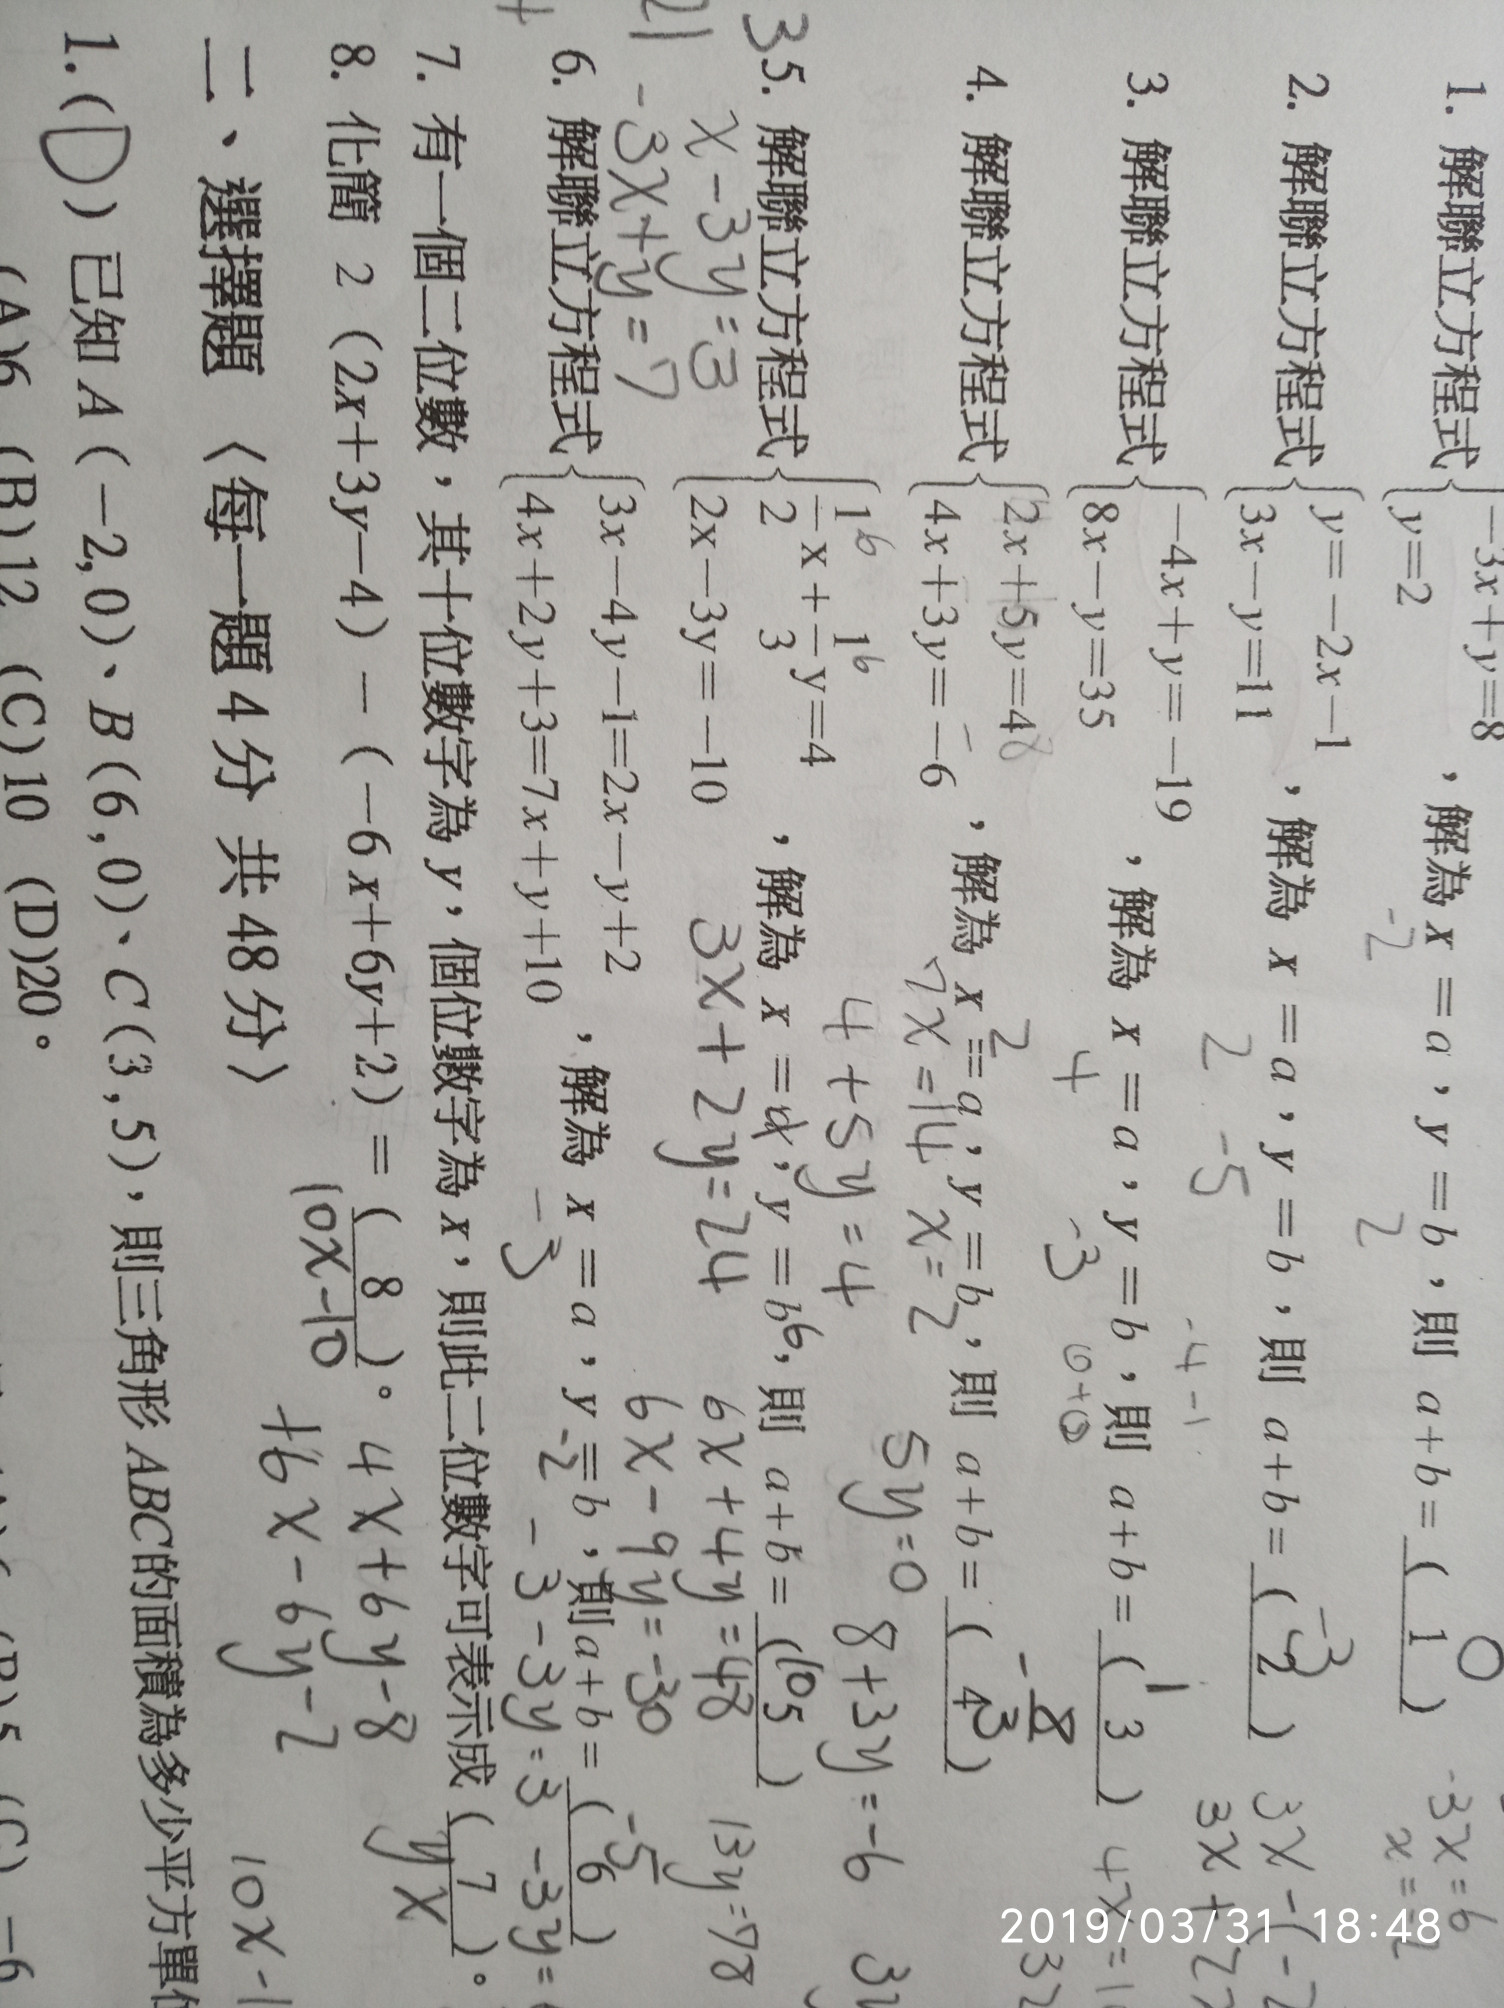 1. 解聯立方程式 { -3x+y=8 , y=2 ,解為 x=a,y=b,則 a+b=( 1 ) 0
-2 2
-3x=6
2. 解聯立方程式 { y=-2x-1 , 3x-y=11 ,解為 x=a,y=b,則 a+b=( 2 ) -3
2 -5 -4-1
3. 解聯立方程式 { -4x+y=-19 , 8x-y=35 ,解為 x=a,y=b,則 a+b=( 3 ) 1
4 -3
4. 解聯立方程式 { 2x+5y=4 , 4x+3y=-6 ,解為 x=a,y=b,則 a+b=( 4 )
7x=14 x=2
4+5y=4 5y=0 8+3y=-6
5. 解聯立方程式 { 1/2 x+1/3 y=4 , 2x-3y=-10 ,解為 x=a,y=b,則 a+b=( 5 ) 10
3x+2y=24 6x+4y=48 13y=78
6x-9y=-30
x-3y=3
-3x+y=7
6. 解聯立方程式 { 3x-4y-1=2x-y+2 , 4x+2y+3=7x+y+10 ,解為 x=a,y=b,則a+b=( 6 ) -5
-3 -2 -3-3y=3 -3y=
7. 有一個二位數,其十位數字為 y,個位數字為 x,則此二位數字可表示成( 7 )。
yx
8. 化簡 2(2x+3y-4)-(-6x+6y+2)=( 8 )。 4x+6y-8
10x-10 +6x-6y-2 10x-1
二、選擇題〈每一題 4 分 共 48 分〉
1.( D )已知 A(-2,0)、B(6,0)、C(3,5),則三角形 ABC的面積為多少平方單
(A)6 (B)12 (C)10 (D)20。
2019/03/31 18:48